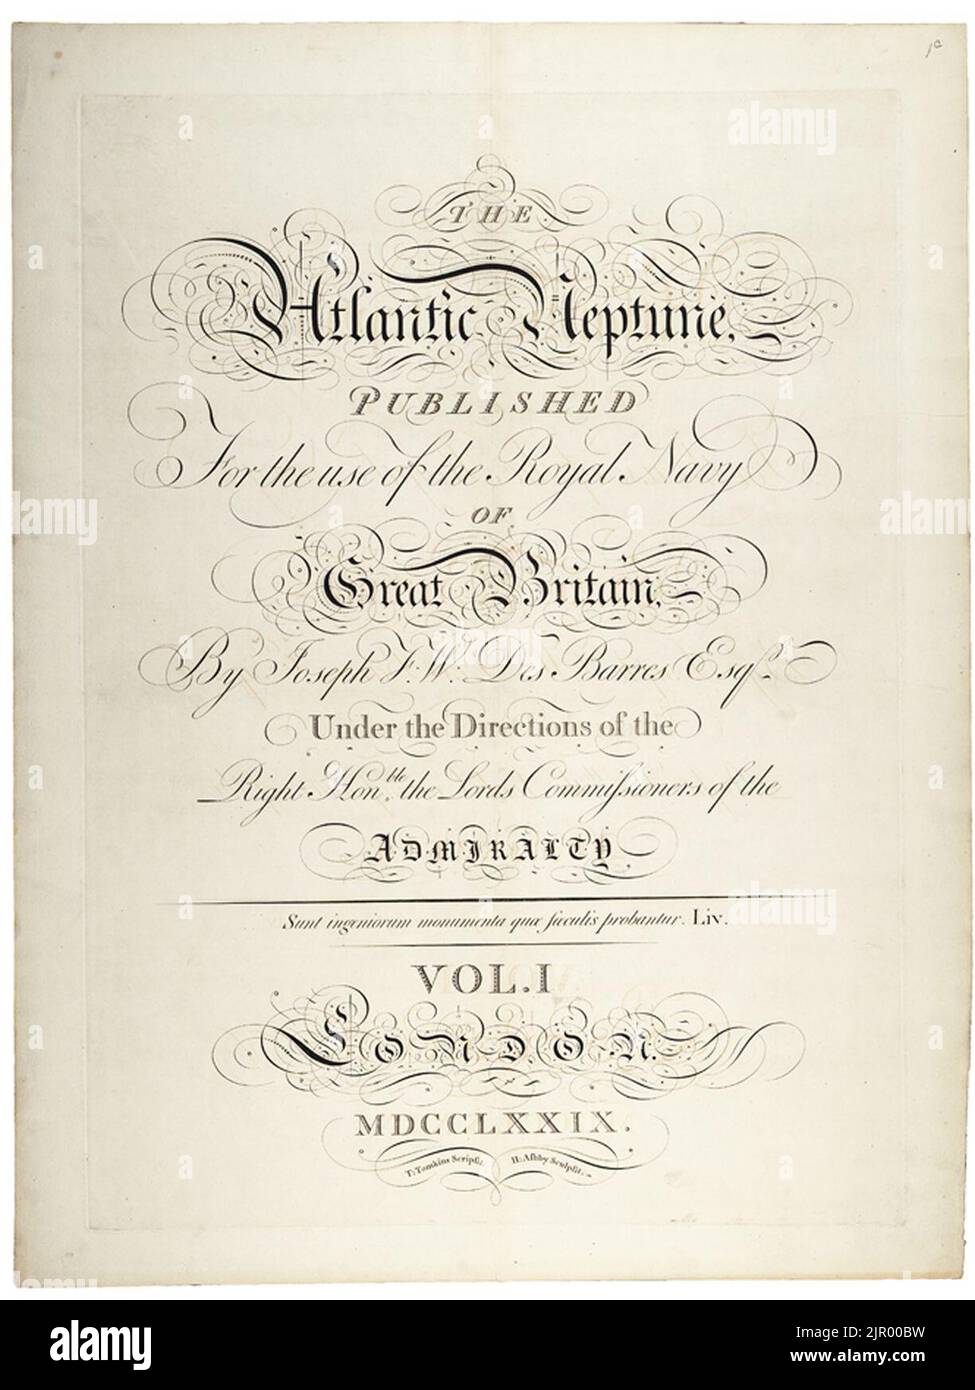 THE
Atlantic Neptune,
PUBLISHED
For the use of the Royal Navy
OF
Great Britain,
By Joseph F. W. Des Barres Esqr.
Under the Directions of the
Right Honble. the Lords Commiſsioners of the
ADMIRALTY
Sunt ingeniorum monumenta quæ ſæculis probantur. Liv.
VOL. I
LONDON.
MDCCLXXIX.
T: Tomkins Scripſit. H: Aſhby Sculpſit.
alamy
Image ID: 2JR00BW
www.alamy.com